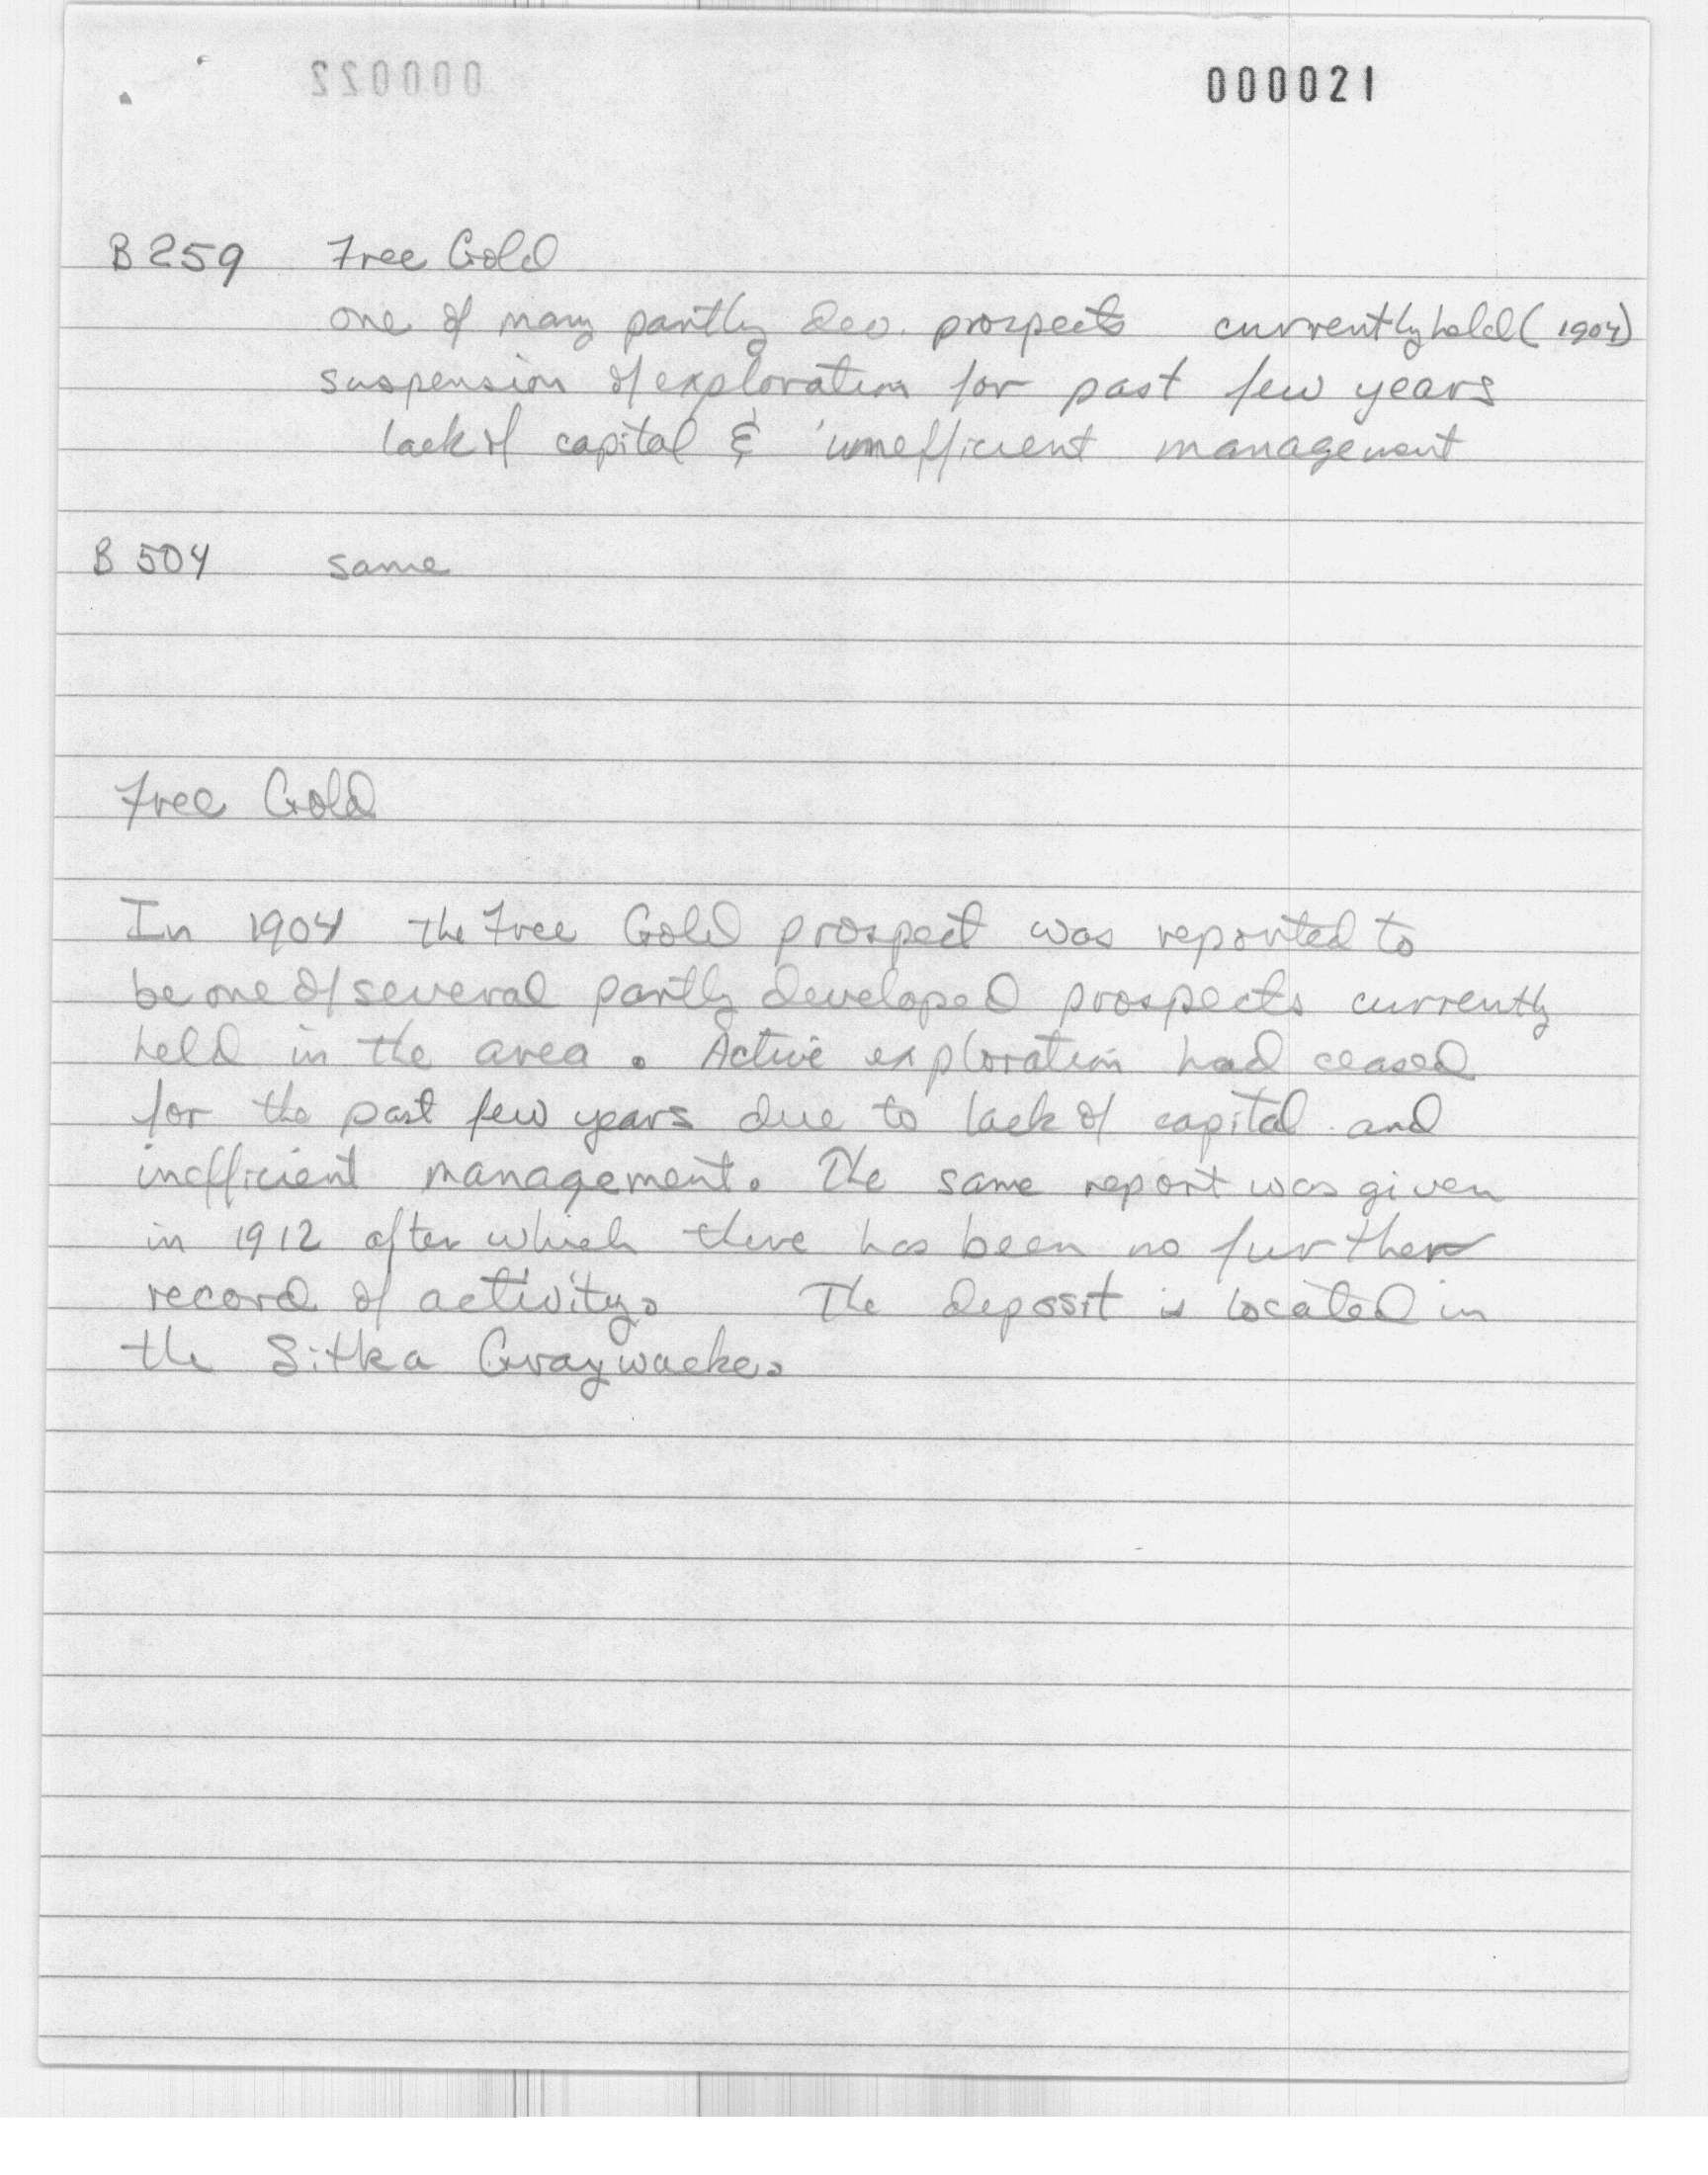 000022 000021
B 259 Free Gold
one of many partly dev. prospects currently held (1904)
suspension of exploration for past few years
lack of capital & inefficient management
B 504 same
Free Gold
In 1904 the Free Gold prospect was reported to
be one of several partly developed prospects currently
held in the area. Active exploration had ceased
for the past few years due to lack of capital and
inefficient management. The same report was given
in 1912 after which there has been no further
record of activity. The deposit is located in
the Sitka Graywacke.